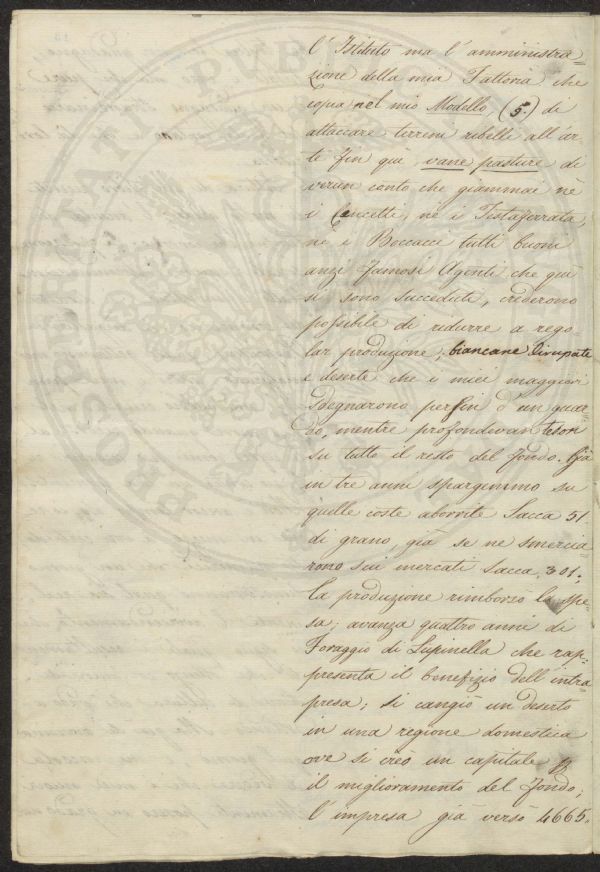 l'Istituto ma l'amministra=
zione della mia Fattoria che
copia nel mio Modello, (5.) di
attaccare terreni ribelli all'ar=
te fin quì, vane pasture di
verun conto che giammai nè
i Cancelli, nè i Testaferrata,
nè i Boccacci tutti buoni
anzi famosi Agenti che qua
si sono succeduti, crederono
possibile di ridurre a rego
lar produzione, biancane dirupate
e deserte che i miei maggiori
sdegnarono perfin d'un guar=
do, mentre profondevan tesori
su tutto il resto del fondo. Già
in tre anni spargemmo su
quelle coste aborrite Sacca 51
di grano, già se ne smercia=
rono sui mercati Sacca 301.
la produzione rimborsò la spe=
sa, avanza quattro anni di
Foraggio di Lupinella che rap=
presenta il benefizio dell'intra
presa; si cangiò un deserto
in una regione domestica
ove si creò un capitale p
il miglioramento del fondo;
l'impresa già versò 4665.
PROSPERITATI PUBLICAE